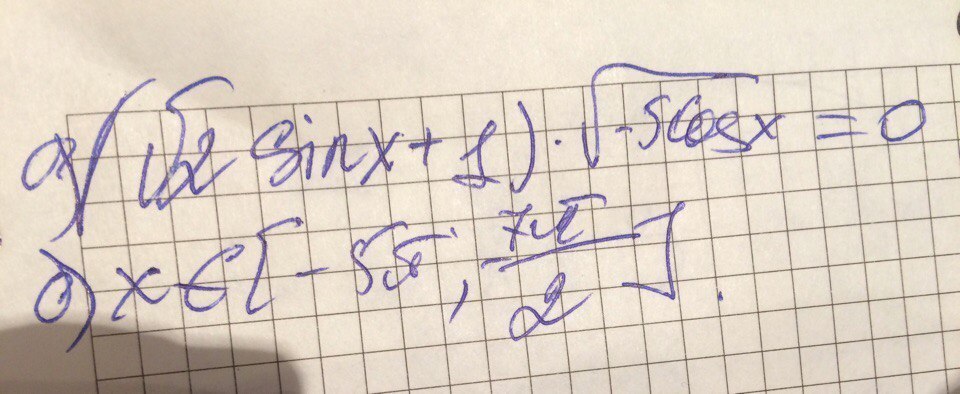 а) (√2 sinx + 1) · √-5cosx = 0
б) x ∈ [-5π; -7π/2].